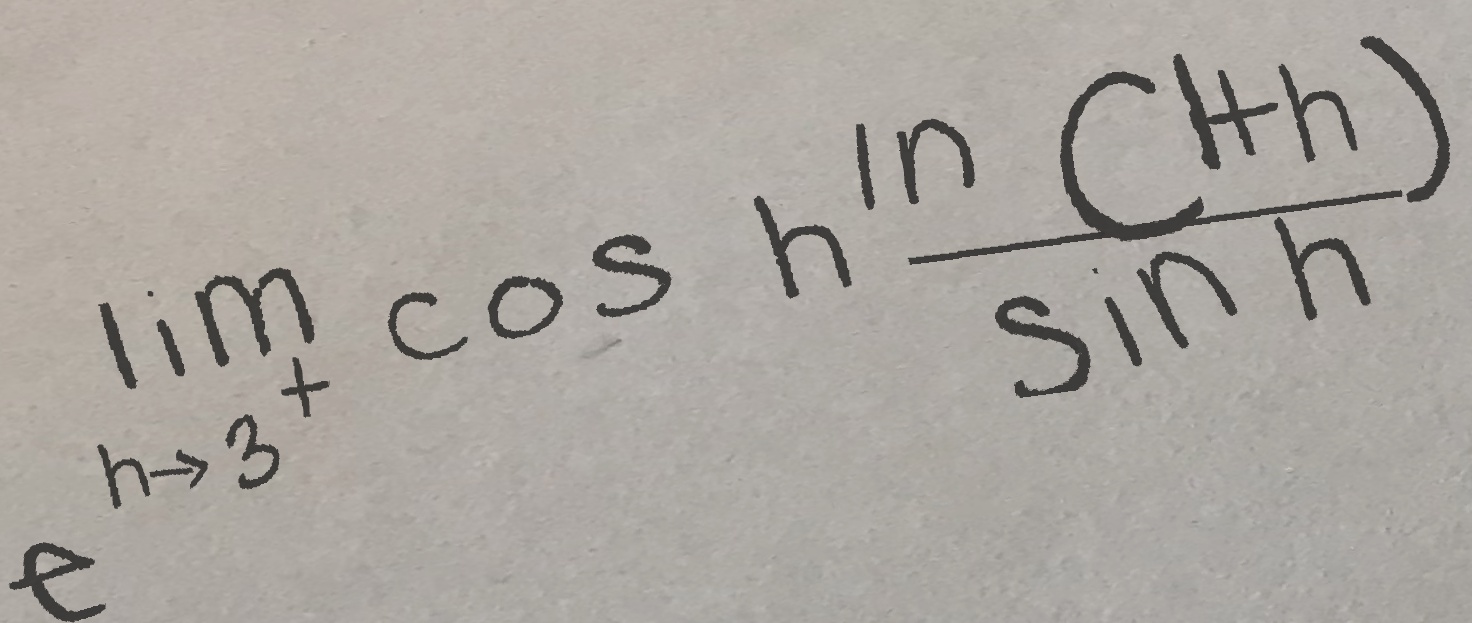 e^{\lim_{h \to 3^+} \cos h^{\frac{\ln (1+h)}{\sin h}}}